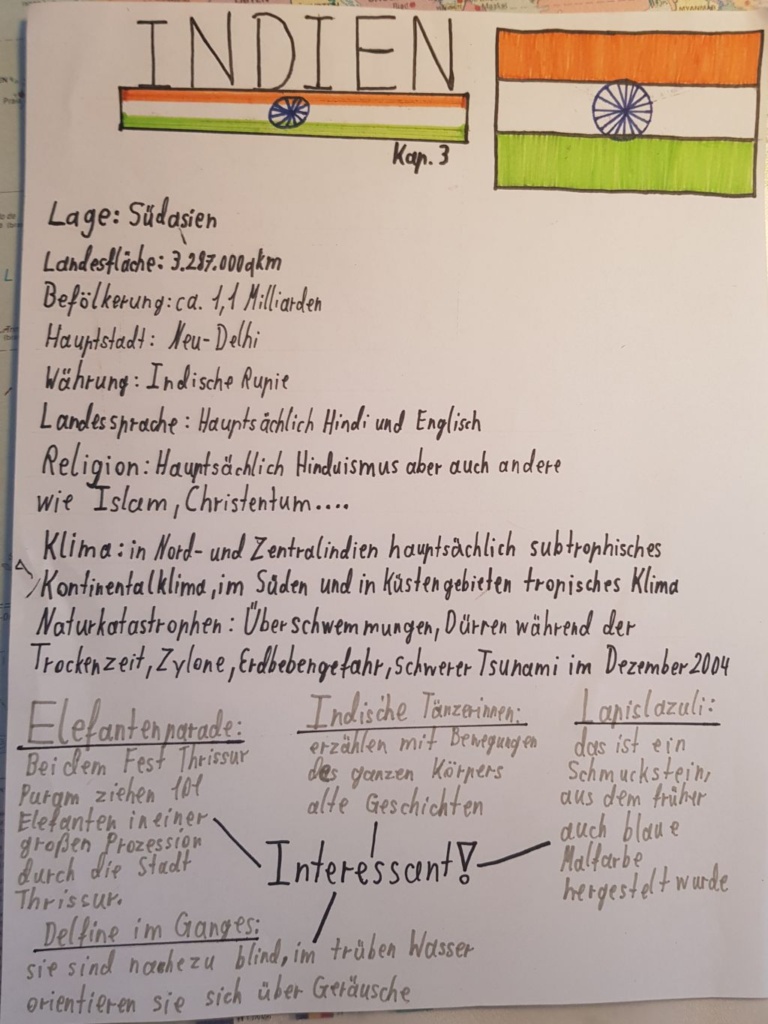 INDIEN
Kap. 3
Lage: Südasien
Landesfläche: 3.287.000qkm
Befölkerung: ca. 1,1 Milliarden
Hauptstadt: Neu-Delhi
Währung: Indische Rupie
Landessprache: Hauptsächlich Hindi und Englisch
Religion: Hauptsächlich Hinduismus aber auch andere
wie Islam, Christentum....
Klima: in Nord- und Zentralindien hauptsächlich subtrophisches
Kontinentalklima, im Süden und in Küstengebieten tropisches Klima
Naturkatastrophen: Überschwemmungen, Dürren während der
Trockenzeit, Zylone, Erdbebengefahr, schwerer Tsunami im Dezember 2004
Elefantenparade:
Bei dem Fest Thrissur
Purgm ziehen 101
Elefanten in einer
großen Prozession
durch die Stadt
Thrissur.
Indische Tänzerinnen:
erzählen mit Bewegungen
des ganzen Körpers
alte Geschichten
Lapislazuli:
das ist ein
Schmuckstein,
aus dem früher
auch blaue
Malfarbe
hergestelt wurde
Interessant!
Delfine im Ganges:
sie sind nahezu blind, im trüben Wasser
orientieren sie sich über Geräusche